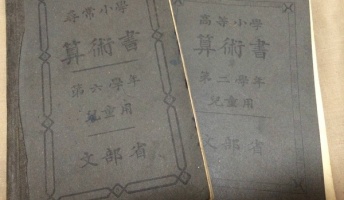 尋常小學
算術書
第六學年
兒童用
文部省
高等小學
算術書
第二學年
兒童用
文部省